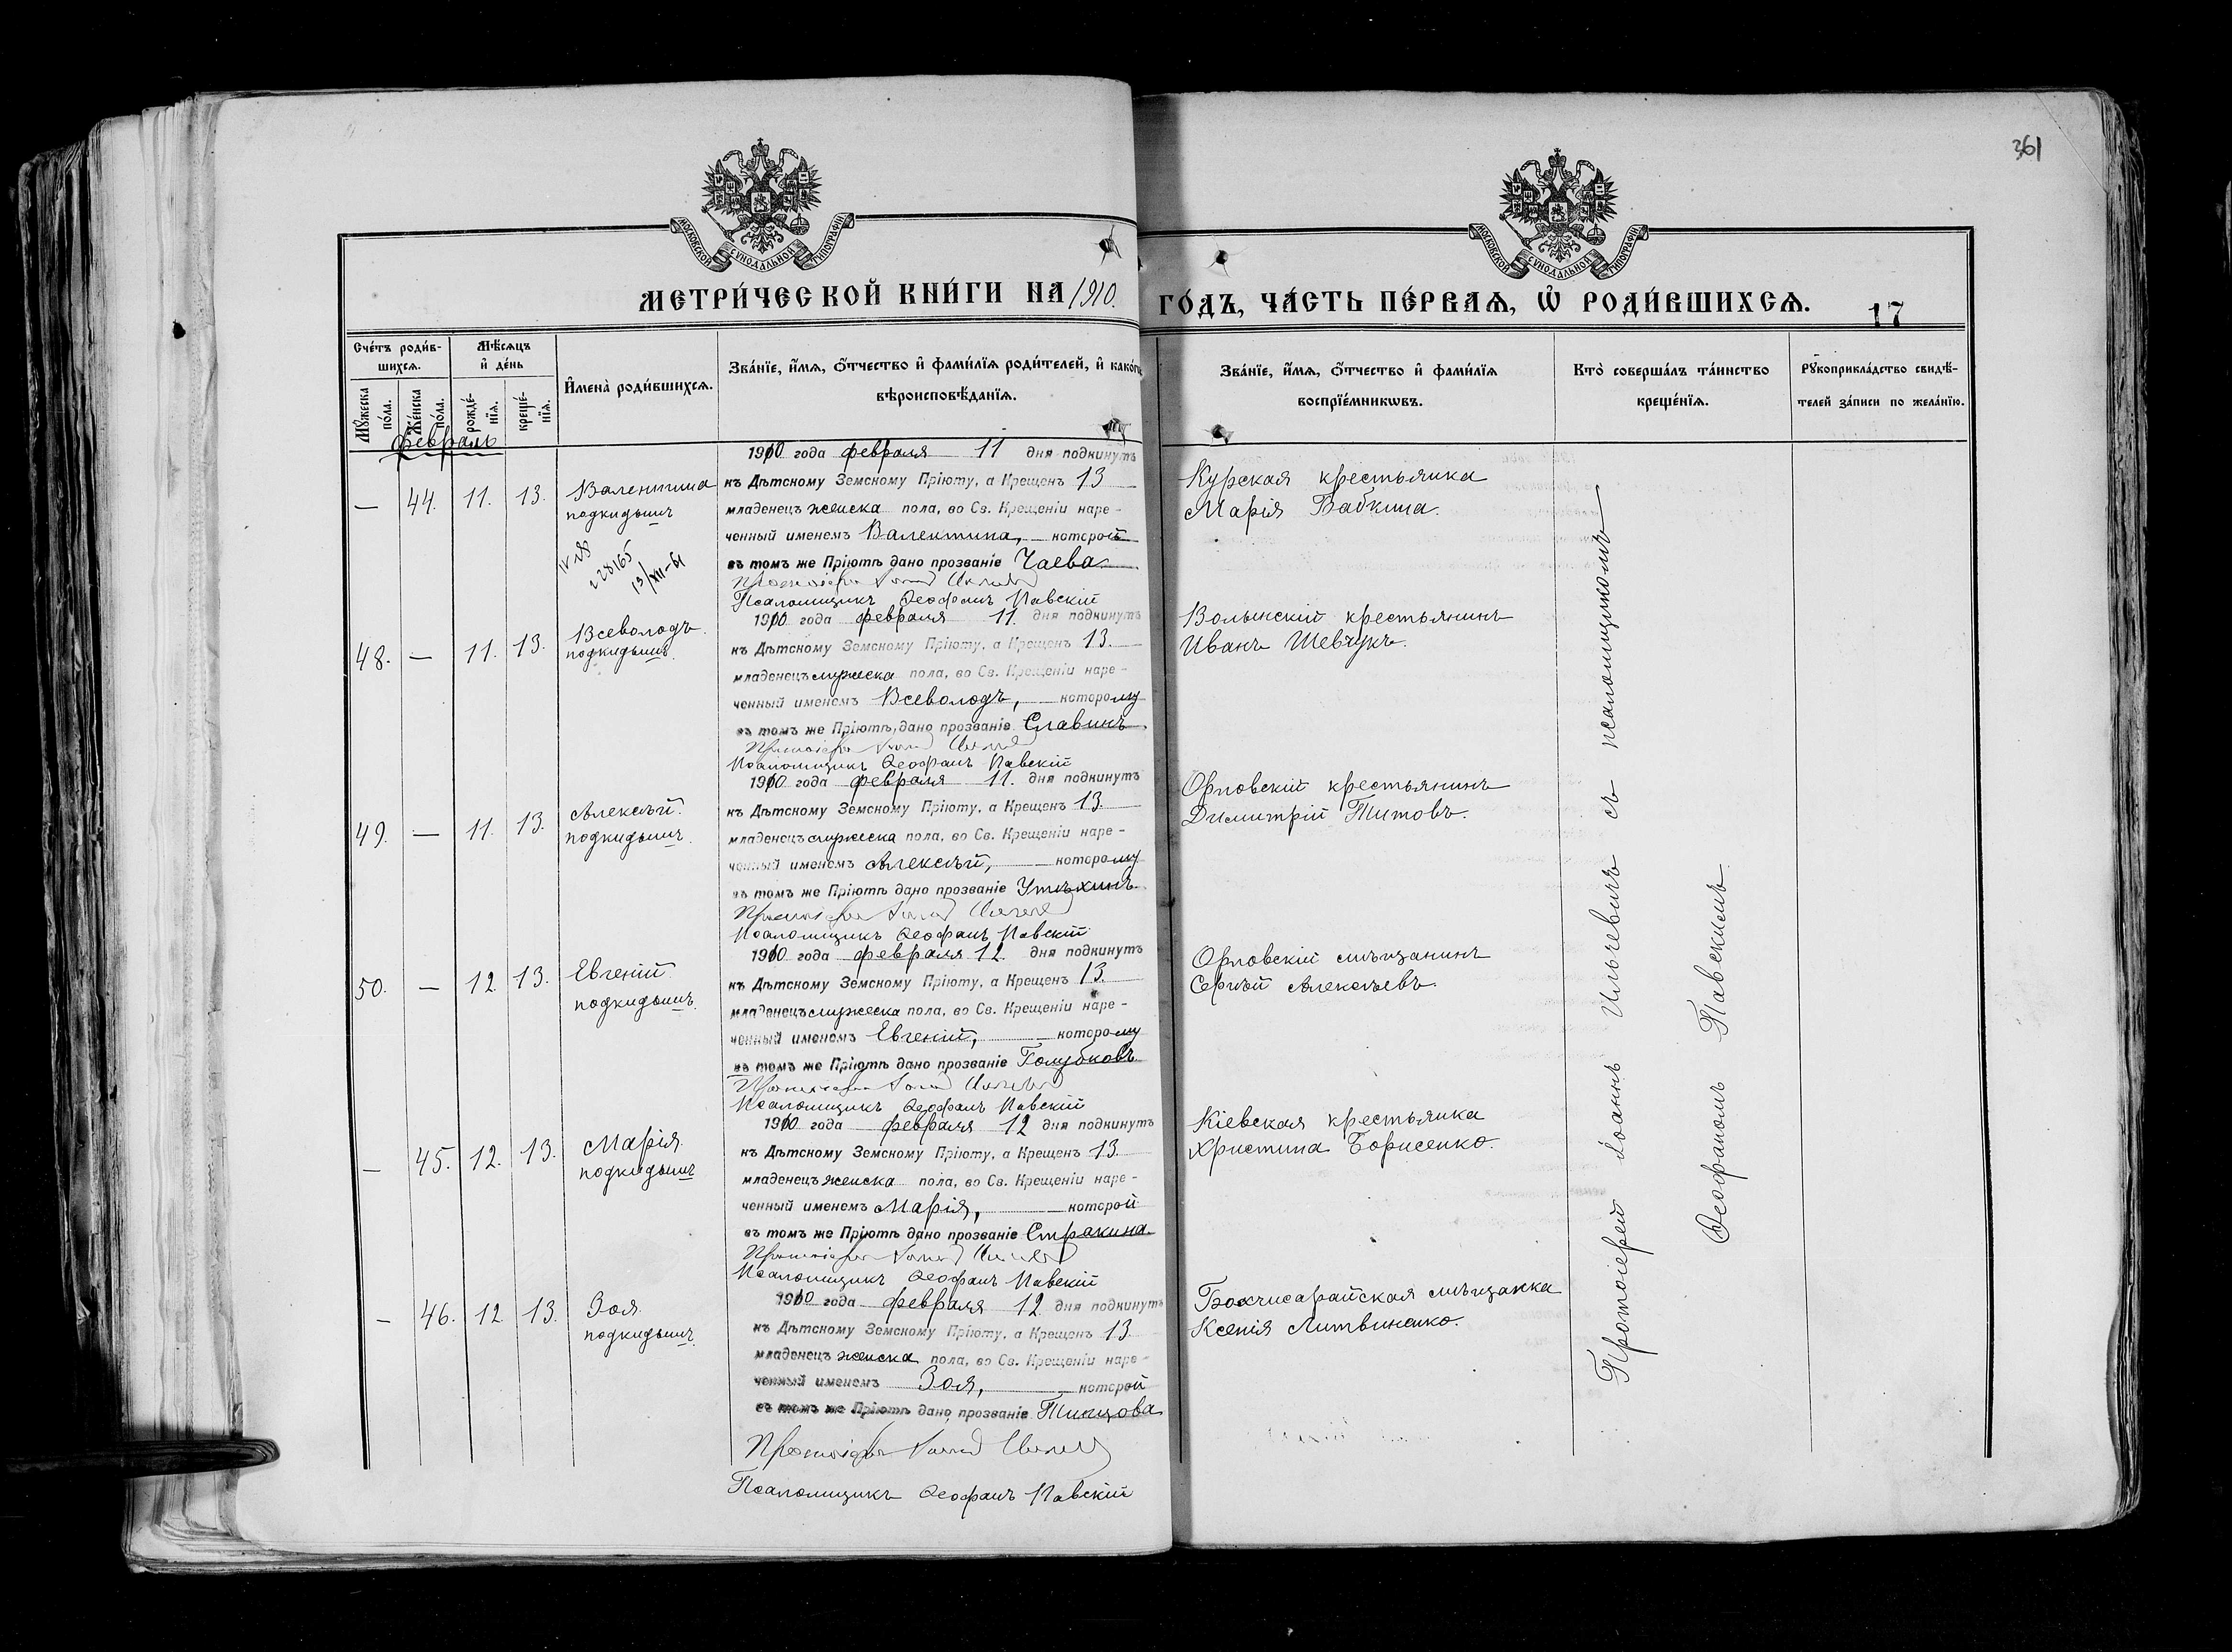 361
МОСКОВСКОЙ СѴНОДАЛЬНОЙ ТИПОГРАФІИ
МОСКОВСКОЙ СѴНОДАЛЬНОЙ ТИПОГРАФІИ
МЕТРИ́ЧЕСКОЙ КНИ́ГИ НА 1910. ГО́ДЪ, ЧА́СТЬ ПЕ́РВАѦ, Ѡ҆ РОДИ́ВШИХСѦ.
17
Сче́тъ роди́в-
шихсѧ.
Мꙋ́жеска по́ла.
Же́нска по́ла.
Мѣ́сѧцъ
и҆ де́нь
рожде́-
нїѧ.
креще́-
нїѧ.
И҆мена̀ роди́вшихсѧ.
Зва́нїе, и҆́мѧ, ѻ҆́тчество и҆ фами́лїѧ роди́телей, и҆ како́гѡ
вѣроисповѣ́данїѧ.
Зва́нїе, и҆́мѧ, ѻ҆́тчество и҆ фами́лїѧ
воспрїе́мникѡвъ.
Кто̀ соверша́лъ та́инство
креще́нїѧ.
Рꙋкоприкла́дство свидѣ́-
телей за́писи по жела́нїю.
февраль
— 44. 11. 13. Валентина
подкидышъ
IV 28
228165
13/XII-61
1910 года февраля 11 дня подкинутъ
къ Дѣтскому Земскому Пріюту, а Крещенъ 13
младенецъ женска пола, во Св. Крещеніи наре-
ченный именемъ Валентина, которой
въ томъ же Пріютѣ дано прозваніе Чаева
Псаломщикъ Ѳеофанъ Павскій
Курская крестьянка
Марія Бабкина.
48. — 11. 13. Всеволодъ.
подкидышъ.
1910 года февраля 11. дня подкинутъ
къ Дѣтскому Земскому Пріюту, а Крещенъ 13.
младенецъ мужеска пола, во Св. Крещеніи наре-
ченный именемъ Всеволодъ, которому
въ томъ же Пріютѣ дано прозваніе Славинъ
Псаломщикъ Ѳеофанъ Павскій
Волынскій крестьянинъ
Иванъ Шевчукъ.
49. — 11. 13. Алексѣй.
подкидышъ.
1910 года февраля 11. дня подкинутъ
къ Дѣтскому Земскому Пріюту, а Крещенъ 13.
младенецъ мужеска пола, во Св. Крещеніи наре-
ченный именемъ Алексѣй, которому
въ томъ же Пріютѣ дано прозваніе Утѣхинъ.
Псаломщикъ Ѳеофанъ Павскій
Орловскій крестьянинъ
Димитрій Титовъ.
50. — 12 13. Евгеній.
подкидышъ.
1910 года февраля 12. дня подкинутъ
къ Дѣтскому Земскому Пріюту, а Крещенъ 13.
младенецъ мужеска пола, во Св. Крещеніи наре-
ченный именемъ Евгеній, которому
въ томъ же Пріютѣ дано прозваніе Голубковъ.
Псаломщикъ Ѳеофанъ Павскій
Орловскій мѣщанинъ
Сергѣй Алексѣевъ.
— 45. 12. 13. Марія.
подкидышъ
1910 года февраля 12 дня подкинутъ
къ Дѣтскому Земскому Пріюту, а Крещенъ 13.
младенецъ женска пола, во Св. Крещеніи наре-
ченный именемъ Марія, которой
въ томъ же Пріютѣ дано прозваніе Стракина.
Псаломщикъ Ѳеофанъ Павскій
Кіевская крестьянка
Христина Борисенко.
— 46. 12 13. Зоя.
подкидышъ.
1910 года февраля 12 дня подкинутъ
къ Дѣтскому Земскому Пріюту, а Крещенъ 13
младенецъ женска пола, во Св. Крещеніи наре-
ченный именемъ Зоя, которой
въ томъ же Пріютѣ дано прозваніе
Псаломщикъ Ѳеофанъ Павскій
Бахчисарайская мѣщанка
Ксенія Литвиненко.
Протоіерей Іоаннъ Ильчевичъ съ псаломщикомъ
Ѳеофаномъ Павскимъ